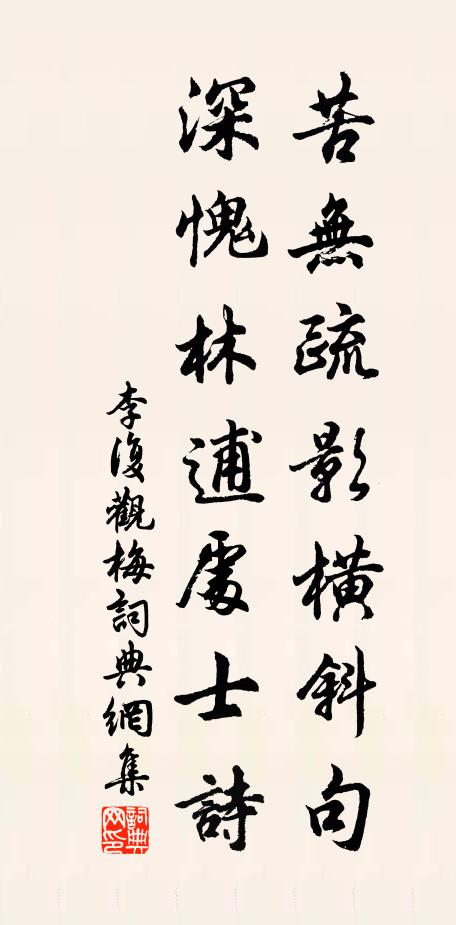 苦無疏影橫斜句
深愧林逋處士詩
李復觀梅詞典網集
詞典網印